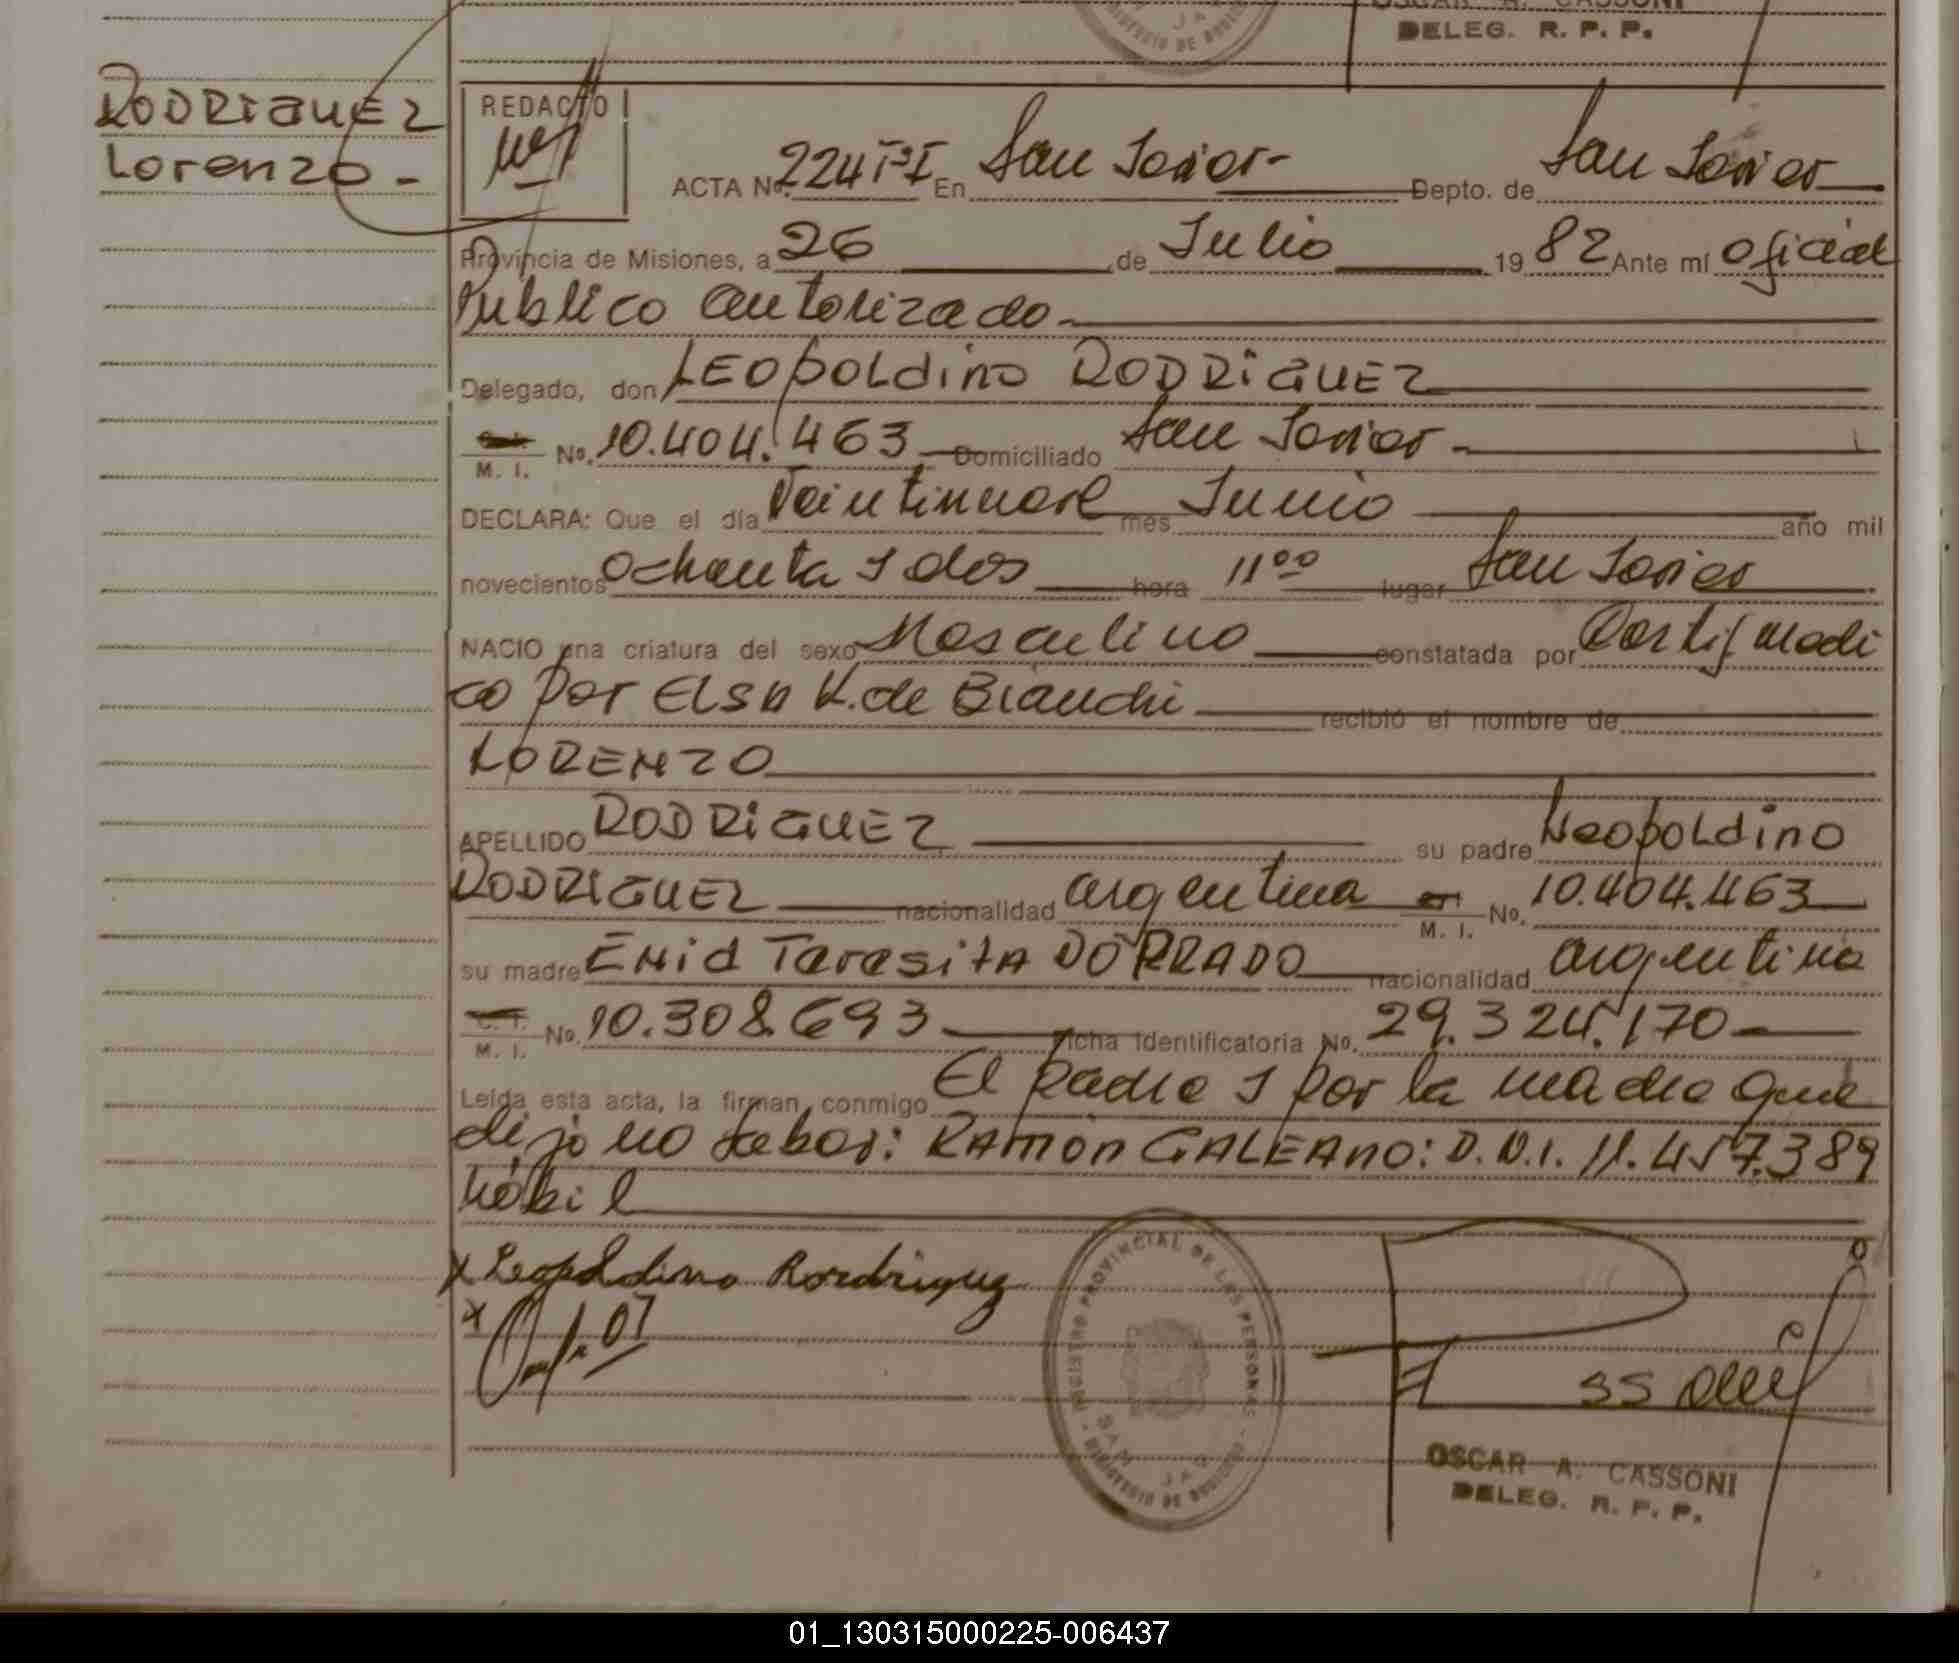 OSCAR A. CASSONI
DELEG. R. P. P.
RODRIGUEZ
Lorenzo -
REDACTO
ACTA No. 224 Tº I En San Javier - Depto. de San Javier
Provincia de Misiones, a 26 de Julio 1982 Ante mí oficial
Publico autorizado
Delegado, don LEOPOLdino RODRIGUEZ
M. I. No. 10.404.463 Domiciliado San Javier -
DECLARA: Que el día Veintinueve mes Junio año mil
novecientos ochenta y dos hora 11 00 lugar San Javier
NACIO una criatura del sexo Masculino constatada por Certif medi
co por Elsa K. de Bianchi recibió el nombre de
LORENZO
APELLIDO RODRIGUEZ su padre Leopoldino
RODRIGUEZ nacionalidad argentina M. I. No. 10.404.463
su madre Enid Teresita DORRADO nacionalidad argentina
C. I. M. I. No. 10.308.693 Ficha Identificatoria No. 29.324.170
Leída esta acta, la firman conmigo El padre y por la madre que
dijo no saber: RAMON GALEANO: D.N.I. 11.457.389
hábil
x Leopoldino Rordriguez
x
REGISTRO PROVINCIAL DE LAS PERSONAS
OSCAR A. CASSONI
DELEG. R. P. P.
01_130315000225-006437